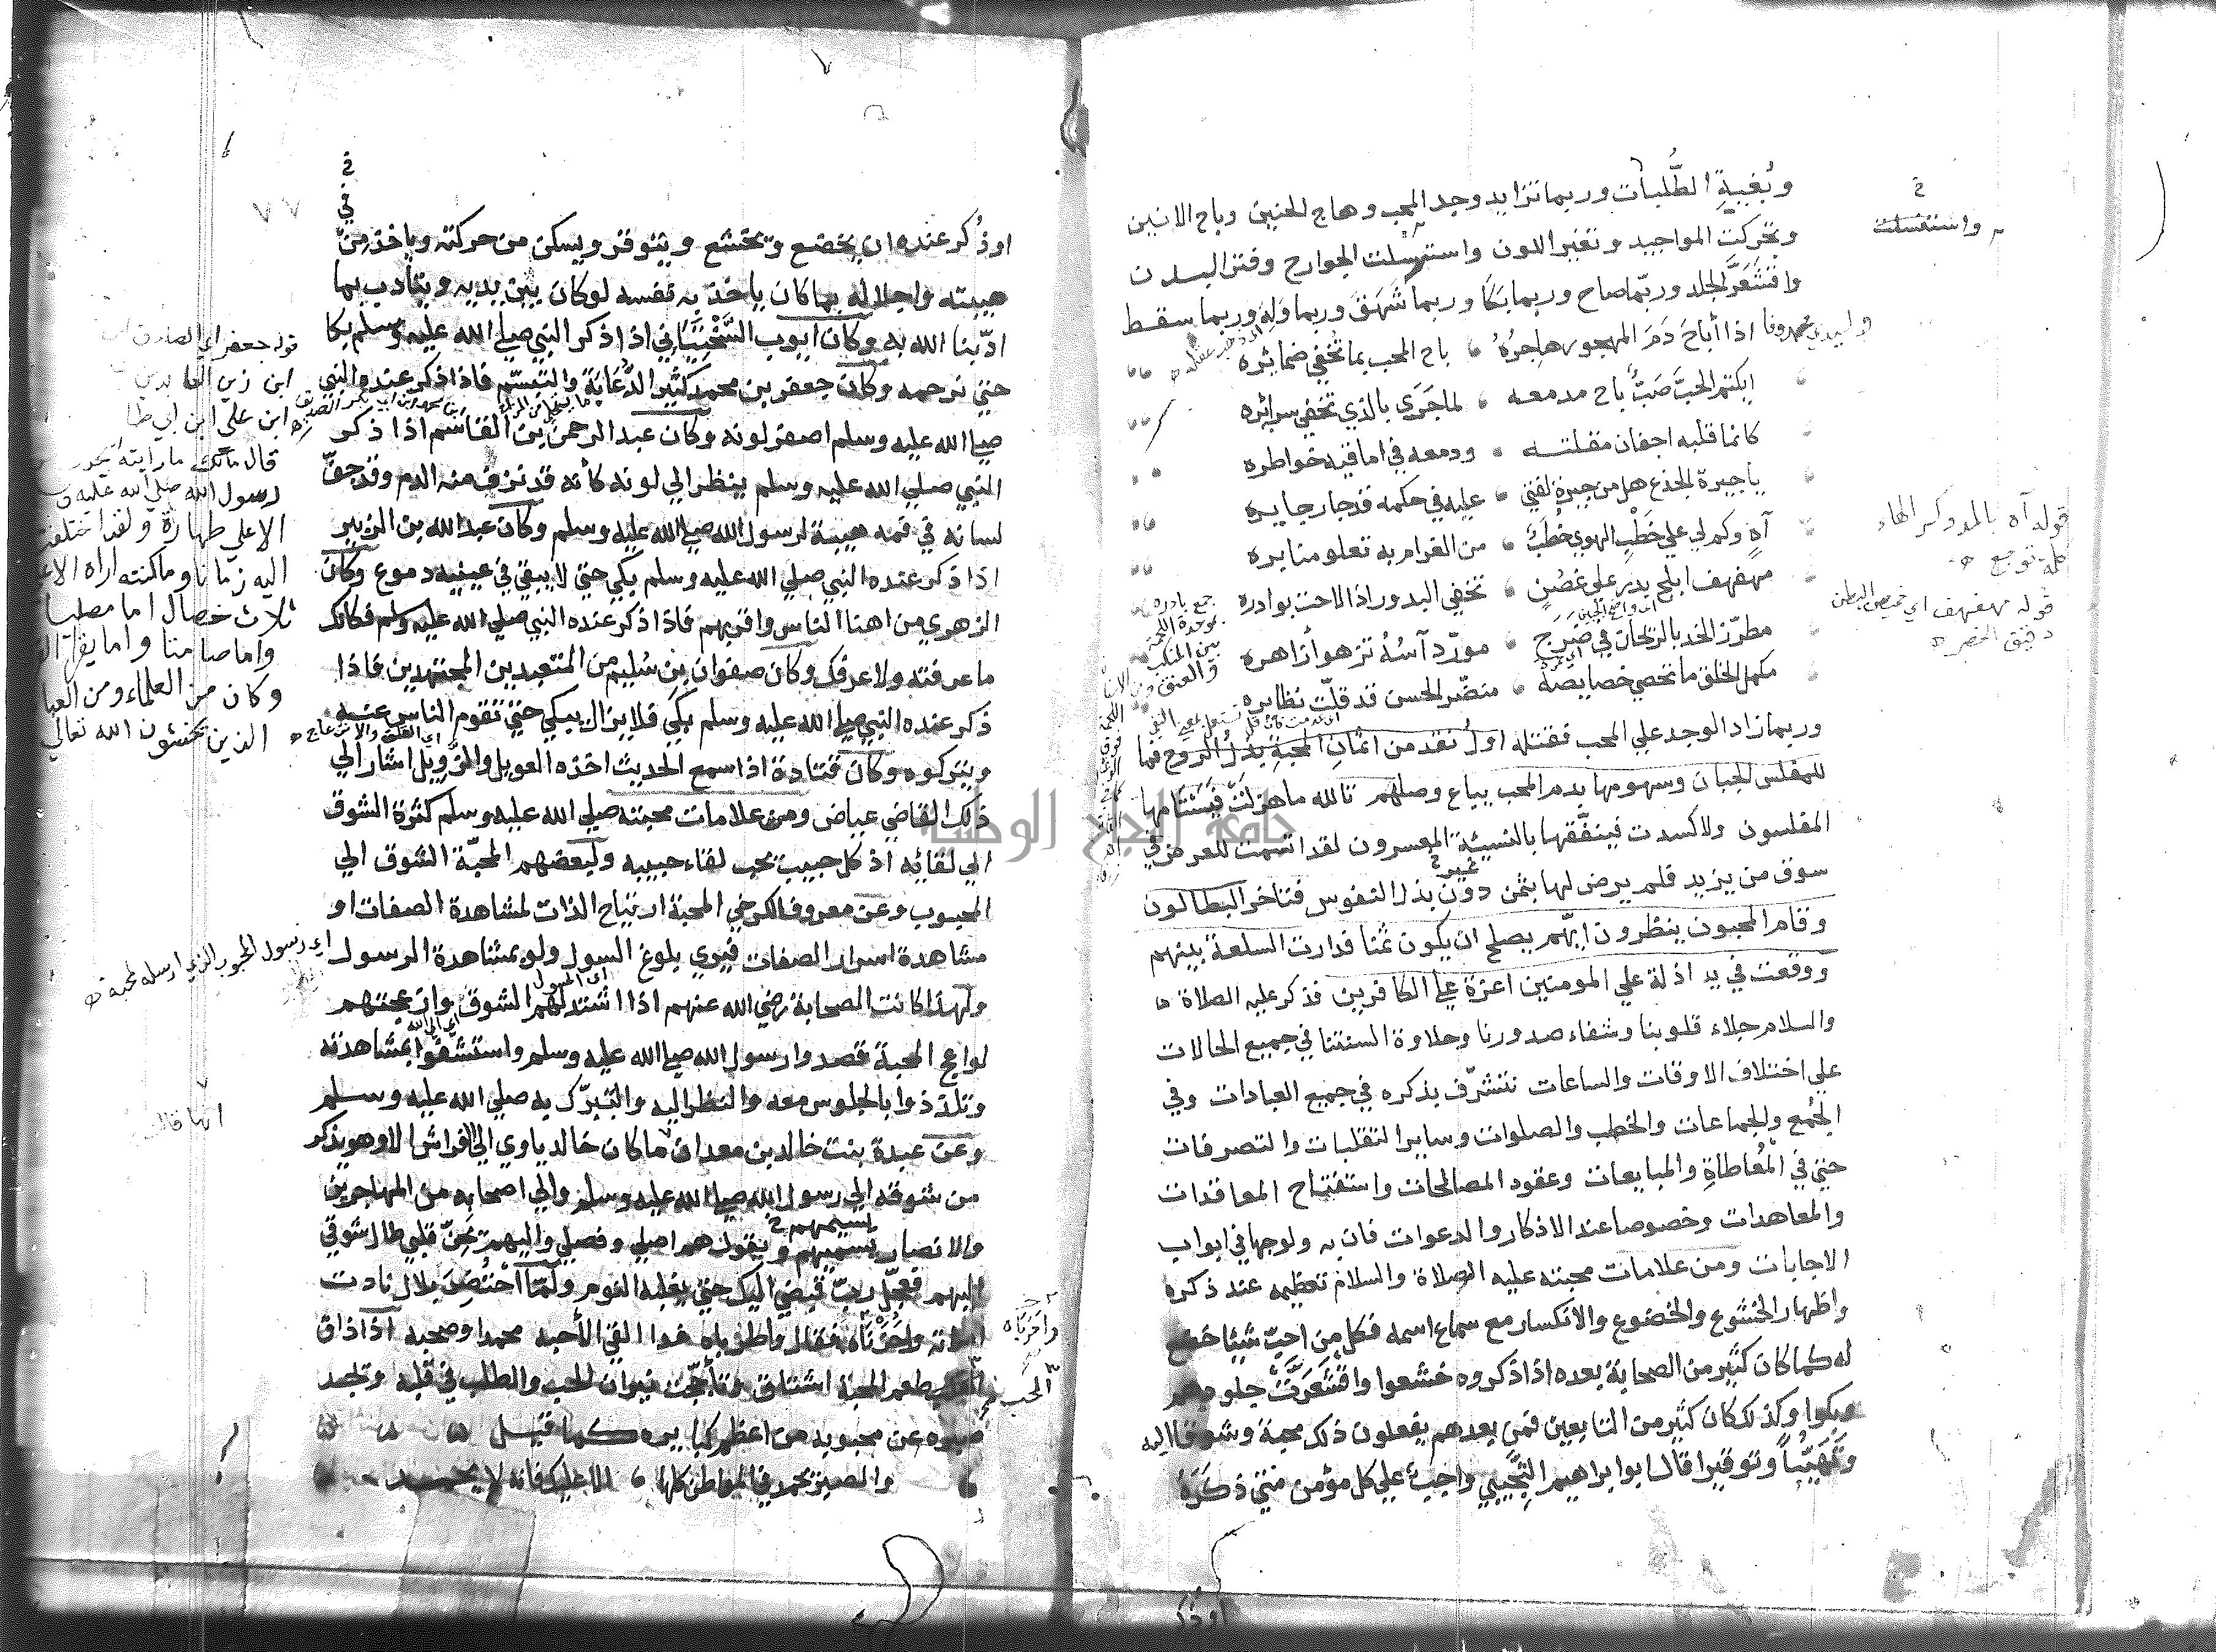 وبُغيةِ الطُّلبات وربما تزايد وجد المحب وهاج الحنين وباح الانين
وتحركت المواجيد وتغير اللون واسترسلت الجوارح وفتر البدن
واقشَعَرَّ الجلد وربّما صاح وربما بَكَا وربما شَهَقَ وربما وَلِه وربما سقط
ولسيدي محمد وفا اذا أباحَ دَمَ المهجور هاجِرُهُ باح المحب بما تُخْفي ضمائره
ايكتم الحبَّ صَبٌّ باح مدمعه لما جَرَى بالذي تخفي سرائره
كانما قلبه اجفان مقلته ودمعه في اماقيه خواطره
يا جيرة الجذع هل من جيرة لفتي عليه في حكمه قد جار جايره
آهٍ وكم لي على خَطْبِ الهوى خُطَبٌ من الغرام به تعلو منابره
مهفهف ابلج بدرٌ على غصُنٍ تخفي البدور اذا لاحت بوادره
مطرّز الخد بالريحان في ضَرَجٍ مورّد آسُهُ تزهو أزاهره
مكمل الخلق ما تحصي خصايصه منضّر الحسن قد قلّت نظايره
وربما زاد الوجد علي المحب فقتله اول نقد من اثمان المحبةِ بذل الروح فما
للمفلس الجبان وسومها بدم المحب يباع وصلهم تالله ما هزلتْ فيستامها
المفلسون ولا كسدت فينفّقها بالنسيئة المعسرون لقد اقيمت للعرض في
سوق من يزيد فلم يرض لها بثمن دون بذل النفوس فتاخر البطالون
وقام المحبون ينظرون ايّهم يصلح ان يكون ثمنا فدارت السلعة بينهم
ووقعت في يد اذلة علي المومنين اعزة علي الكافرين فذكر عليه الصلاة
والسلام جلاء قلوبنا وشفاء صدورنا وحلاوة السنتنا في جميع الحالات
على اختلاف الاوقات والساعات نتشرّف بذكره في جميع العبادات وفي
الجُمع والجماعات والخطب والصلوات وساير التقلبات والتصرفات
حتي في المُعاطاةِ والمبايعات وعقود المصالحات واستفتاح المعاقدات
والمعاهدات وخصوصا عند الاذكار والدعوات فان به ولوجها في ابواب
الاجابات ومن علامات محبته عليه الصلاة والسلام تعظيمه عند ذكره
واظهار الخشوع والخضوع والانكسار مع سماع اسمه فكل من احبّ شيئا خضع
له كما كان كثير من الصحابة بعده اذا ذكروه خشعوا واقشَعَرَّتْ جلودهم
وبكوا وكذلك كان كثير من التابعين فمن بعدهم يفعلون ذلك محبة وشوقا اليه
وتَهَيُّباً وتوقيرا قال ابو ابراهيم التُّجِيبي واجبٌ على كل مؤمن متي ذكرَهُ
واستقسلت
قوله آه بالمد وكسر الهاء
كلمة توجع
قوله مهفهف اي خميص البطن
دقيق الخصر
او ذُكر عنده ان يخضع ويخشع ويتوقر ويسكن من حركته وياخذ من
هيبته واجلاله بما كان ياخذ به نفسه لو كان بين يديه ويتأدب بما
ادّبنا الله به وكان ايوب السَّخْتِيَانِي اذا ذكر النبي صلي الله عليه وسلم بكا
حتي نرحمه وكان جعفر بن محمد كثير الدُّعَابَة والتبسّم فاذا ذكر عنده النبي
صلي الله عليه وسلم اصفر لونه وكان عبد الرحمن بن القاسم اذا ذكر
النبي صلي الله عليه وسلم ينظر الي لونه كأنه قد نزف منه الدم وقد جفّ
لسانه في فمه هيبة لرسول الله صلي الله عليه وسلم وكان عبد الله بن الزبير
اذا ذكر عنده النبي صلي الله عليه وسلم بكي حتي لا يبقي في عينيه دموع وكان
الزهري من اهنا الناس واقربهم فاذا ذكر عنده النبي صلي الله عليه وسلم فكانك
ما عرفته ولا عرفك وكان صفوان بن سُليم من المتعبدين المجتهدين فاذا
ذكر عنده النبي صلي الله عليه وسلم بكي فلا يزال يبكي حتي تقوم الناس عنه
ويتركوه وكان قتادة اذا سمع الحديث اخذه العويل والزويل اشار الي
ذلك القاضي عياض ومن علامات محبته صلي الله عليه وسلم كثرة الشوق
الي لقائه اذ كل حبيب يحب لقاء حبيبه ولبعضهم المحبّة الشوق الي
المحبوب وعن معروف الكرخي المحبة ارتياح الذات لمشاهدة الصفات او
مشاهدة اسرار الصفات فيري بلوغ السول ولو بمشاهدة الرسول
ولهذا كانت الصحابة رضي الله عنهم اذا اشتد لهم الشوق وازعجتهم
لواعج المحبة قصدوا رسول الله صلي الله عليه وسلم واستشفوا بمشاهدته
وتلذذوا بالجلوس معه والنظر اليه والتبرّك به صلي الله عليه وسلم
وعن عبدة بنت خالد بن معدان ما كان خالد ياوي الي فراش الا وهو يذكر
من شوقه الي رسول الله صلي الله عليه وسلم والي اصحابه من المهاجرين
والانصار يسميهم ويقول هم اصلي وفصلي واليهم يحنّ قلبي طال شوقي
اليهم فعجّل ربّ قبضي اليك حتي يغلبه النوم ولمّا احْتُضِرَ بلال نادت
امراته واحُزْنَاه فقال واطرباه غدا القي الأحبه محمدا وصحبه اذا ذاق
طعم المحبة اشتاق وتأججت نيران الحب والطلب في قلبه وتجد
صبره عن محبوبه من اعظم كبايره كما قيل
والصبر يحمد في المواطن كلها الا عليك فانه لا يحمد
قوله جعفر اي الصادق
ابن زين العابدين
ابن علي ابن ابي طا
قال مالك ما رايته
رسول الله صلي الله عليه و
الا على طهارة ولقد اختلفت
اليه زمانا وما كنته اراه الا
ثلاث خصال اما مصليا
واما صامتا واما يقرا
وكان من العلماء ومن العبا
الذين يخشون الله تعالي
اي رسول المحبوب الذي ارسله لمحبه
واحزناه
الحب
جامعة النجاح الوطنية